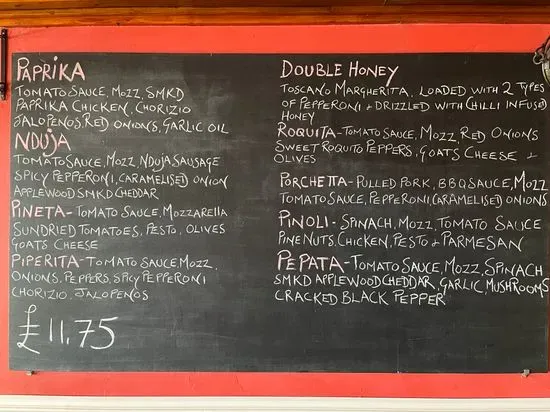 PAPRIKA
TOMATO SAUCE, MOZZ, SMKD
PAPRIKA CHICKEN, CHORIZIO
JALOPENOS, RED ONIONS, GARLIC OIL
NDUJA
TOMATO SAUCE, MOZZ, NDUJA SAUSAGE
SPICY PEPPERONI, (CARAMELISED) ONION
APPLEWOOD SMKD CHEDDAR
PINETA - TOMATO SAUCE, MOZZARELLA
SUNDRIED TOMATOES, PESTO, OLIVES
GOATS CHEESE
PIPERITA - TOMATO SAUCE, MOZZ,
ONIONS, PEPPERS, SPICY PEPPERONI
CHORIZIO, JALOPENOS
£11.75
DOUBLE HONEY
TOSCANO MARGHERITA, LOADED WITH 2 TYPES
OF PEPPERONI + DRIZZLED WITH CHILLI INFUSED
HONEY
ROQUITA - TOMATO SAUCE, MOZZ, RED ONIONS
SWEET ROQUITO PEPPERS, GOATS CHEESE +
OLIVES
PORCHETTA - PULLED PORK, BBQ SAUCE, MOZZ
TOMATO SAUCE, PEPPERONI, (CARAMELISED) ONIONS
PINOLI - SPINACH, MOZZ, TOMATO SAUCE
PINENUTS, CHICKEN, PESTO + PARMESAN
PEPATA - TOMATO SAUCE, MOZZ, SPINACH
SMKD APPLEWOOD CHEDDAR, GARLIC, MUSHROOMS
CRACKED BLACK PEPPER